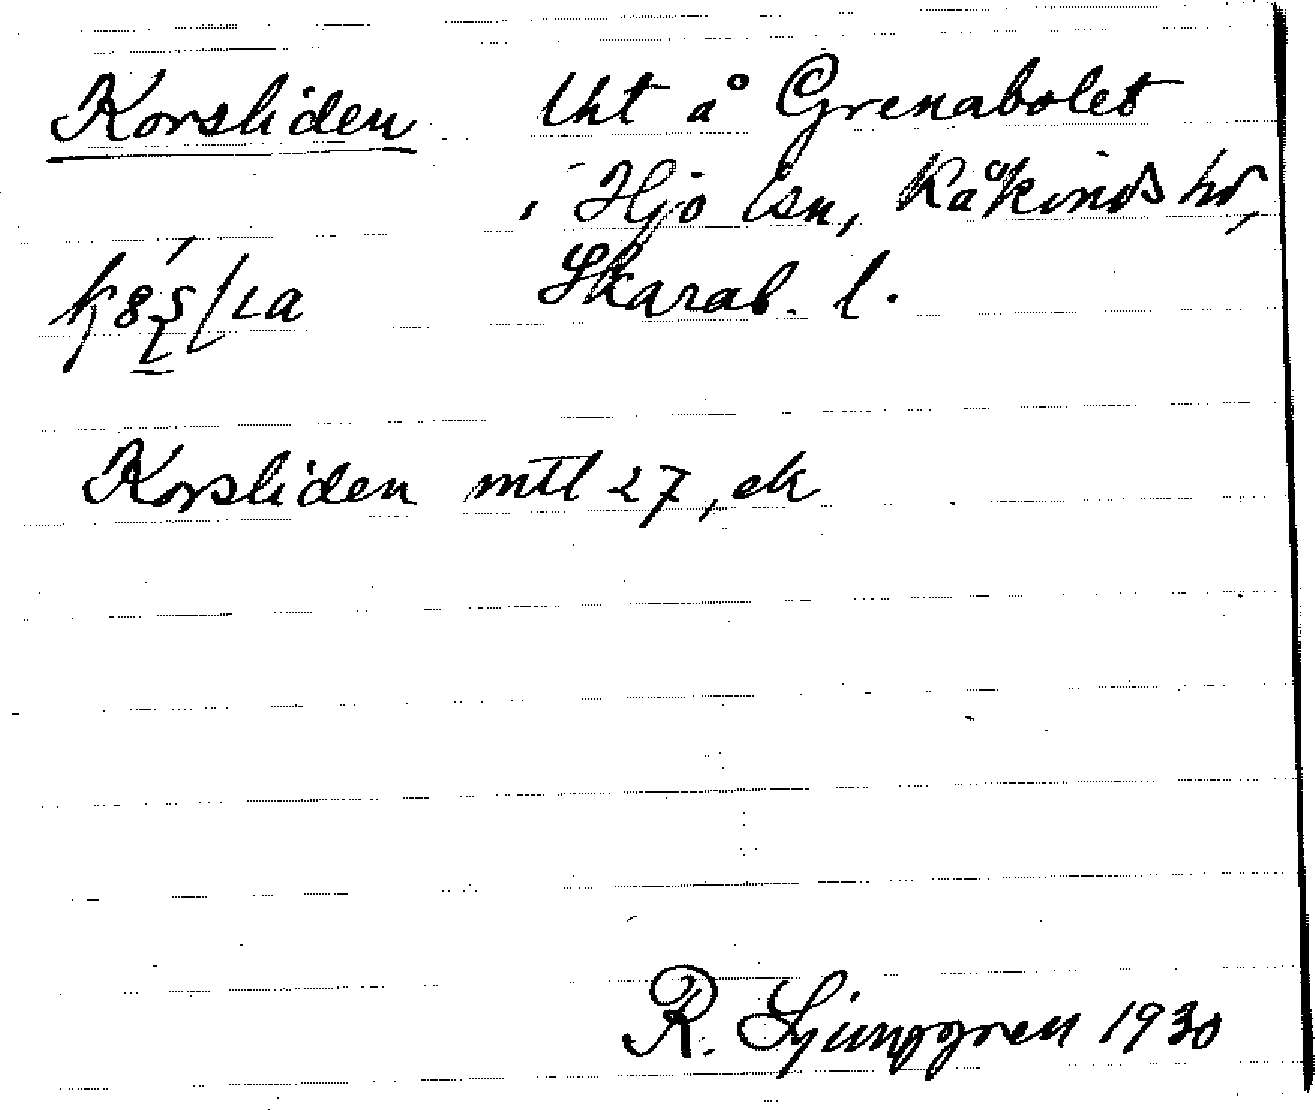 Korsliden lht å Grenabolet
i Hjo lsn, Kåkinds hd,
Skarab. l.
Korsliden mtl 27, ek
R. Ljunggren 1930